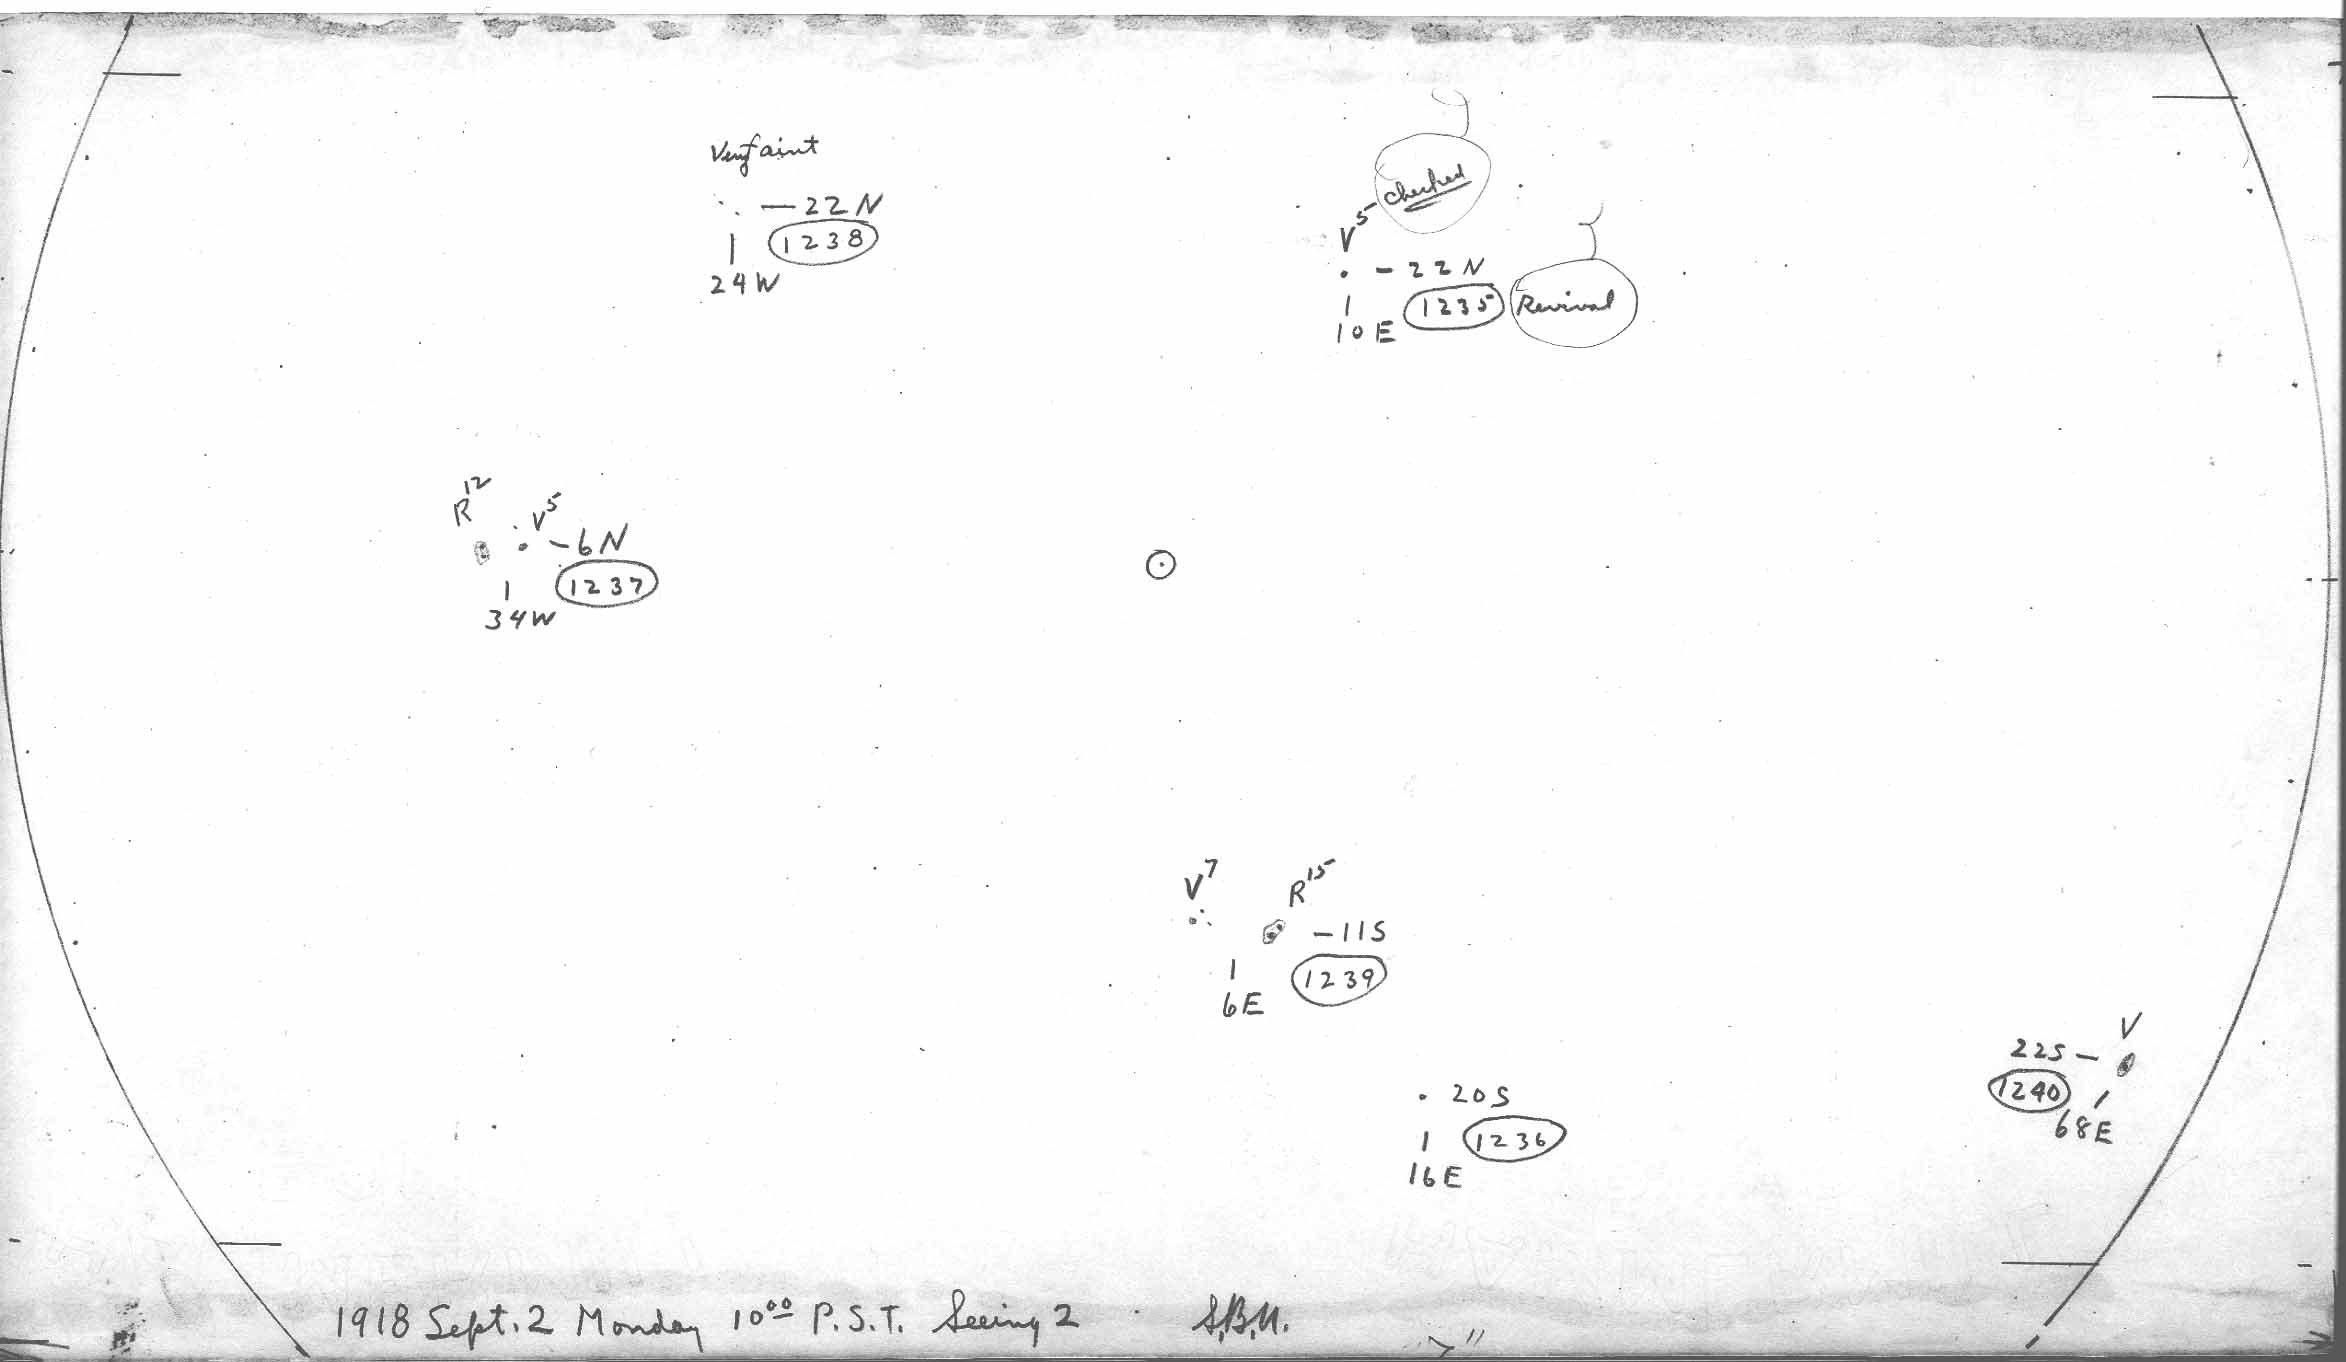 Very faint
— 22 N
1238
24 W
checked
V⁵
- 22 N
1235
Revival
10 E
R¹²
V⁵
- 6 N
1237
34 W
V⁷
R¹⁵
- 11 S
1239
6 E
V
22 S -
1240
68 E
20 S
1236
16 E
1918 Sept. 2 Monday 10⁰⁰ P.S.T. Seeing 2
S.B.N.